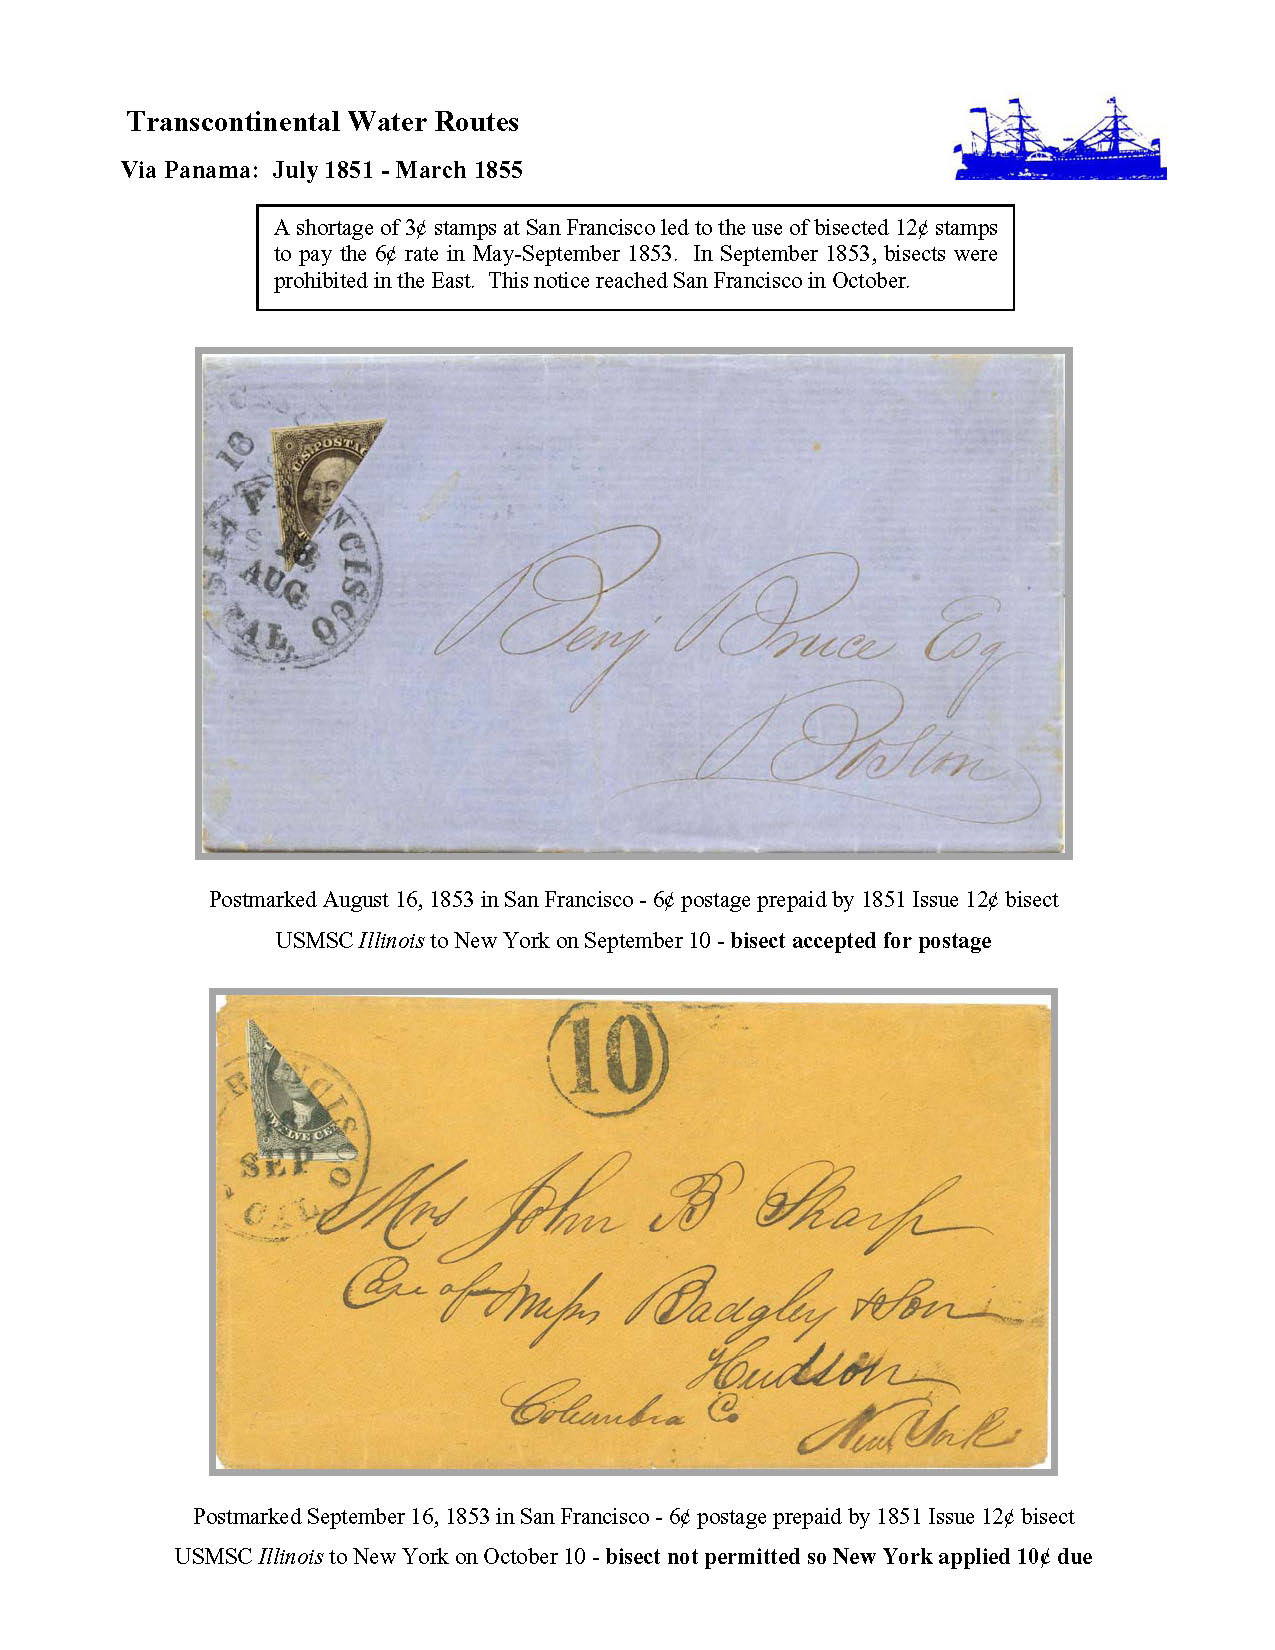 Transcontinental Water Routes
Via Panama: July 1851 - March 1855
A shortage of 3¢ stamps at San Francisco led to the use of bisected 12¢ stamps
to pay the 6¢ rate in May-September 1853. In September 1853, bisects were
prohibited in the East. This notice reached San Francisco in October.
18
U.S. POSTAG
SAN FRANCISCO
AUG
CAL.
Benj Bruce Esq
Boston
Postmarked August 16, 1853 in San Francisco - 6¢ postage prepaid by 1851 Issue 12¢ bisect
USMSC Illinois to New York on September 10 - bisect accepted for postage
10
RANCISCO
TWELVE CE
SEP
CAL
Mrs John B Sharp
Care of Messrs Badgley & Son
Hudson
Columbia Co
New York
Postmarked September 16, 1853 in San Francisco - 6¢ postage prepaid by 1851 Issue 12¢ bisect
USMSC Illinois to New York on October 10 - bisect not permitted so New York applied 10¢ due